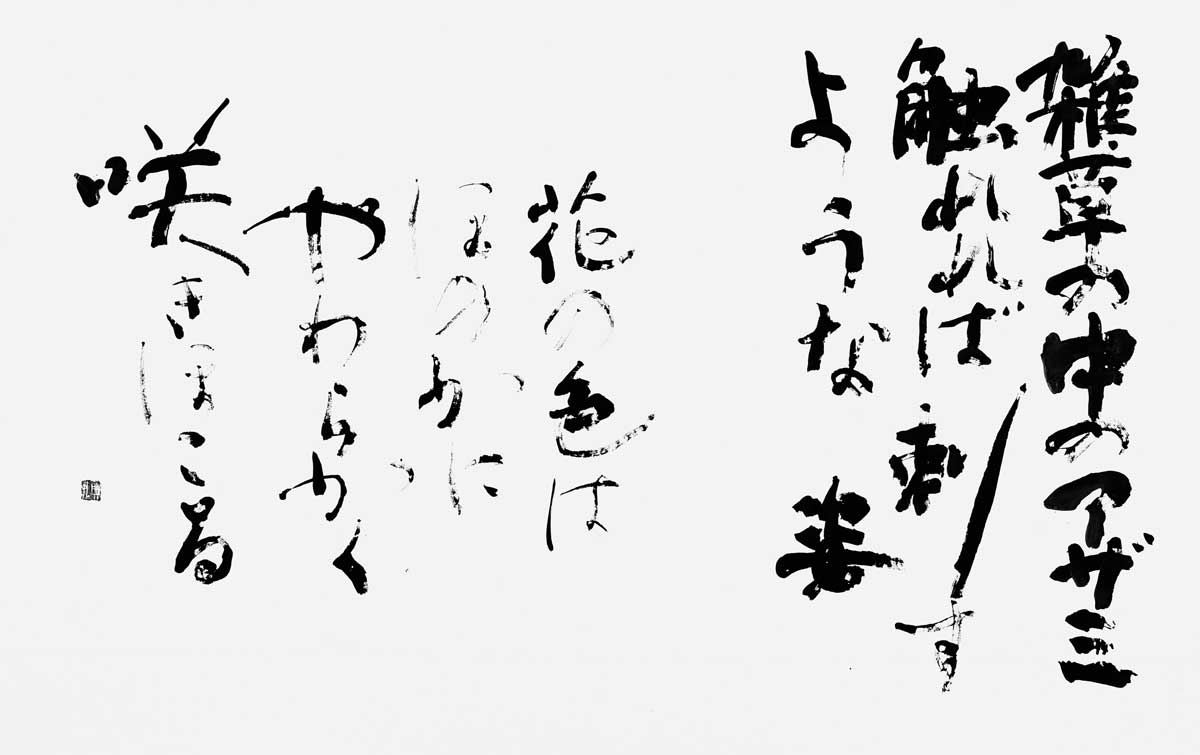 雑草の中のアザミ
触れれば刺す
ような姿
花の色は
ほのかに
やわらかく
咲きほこる